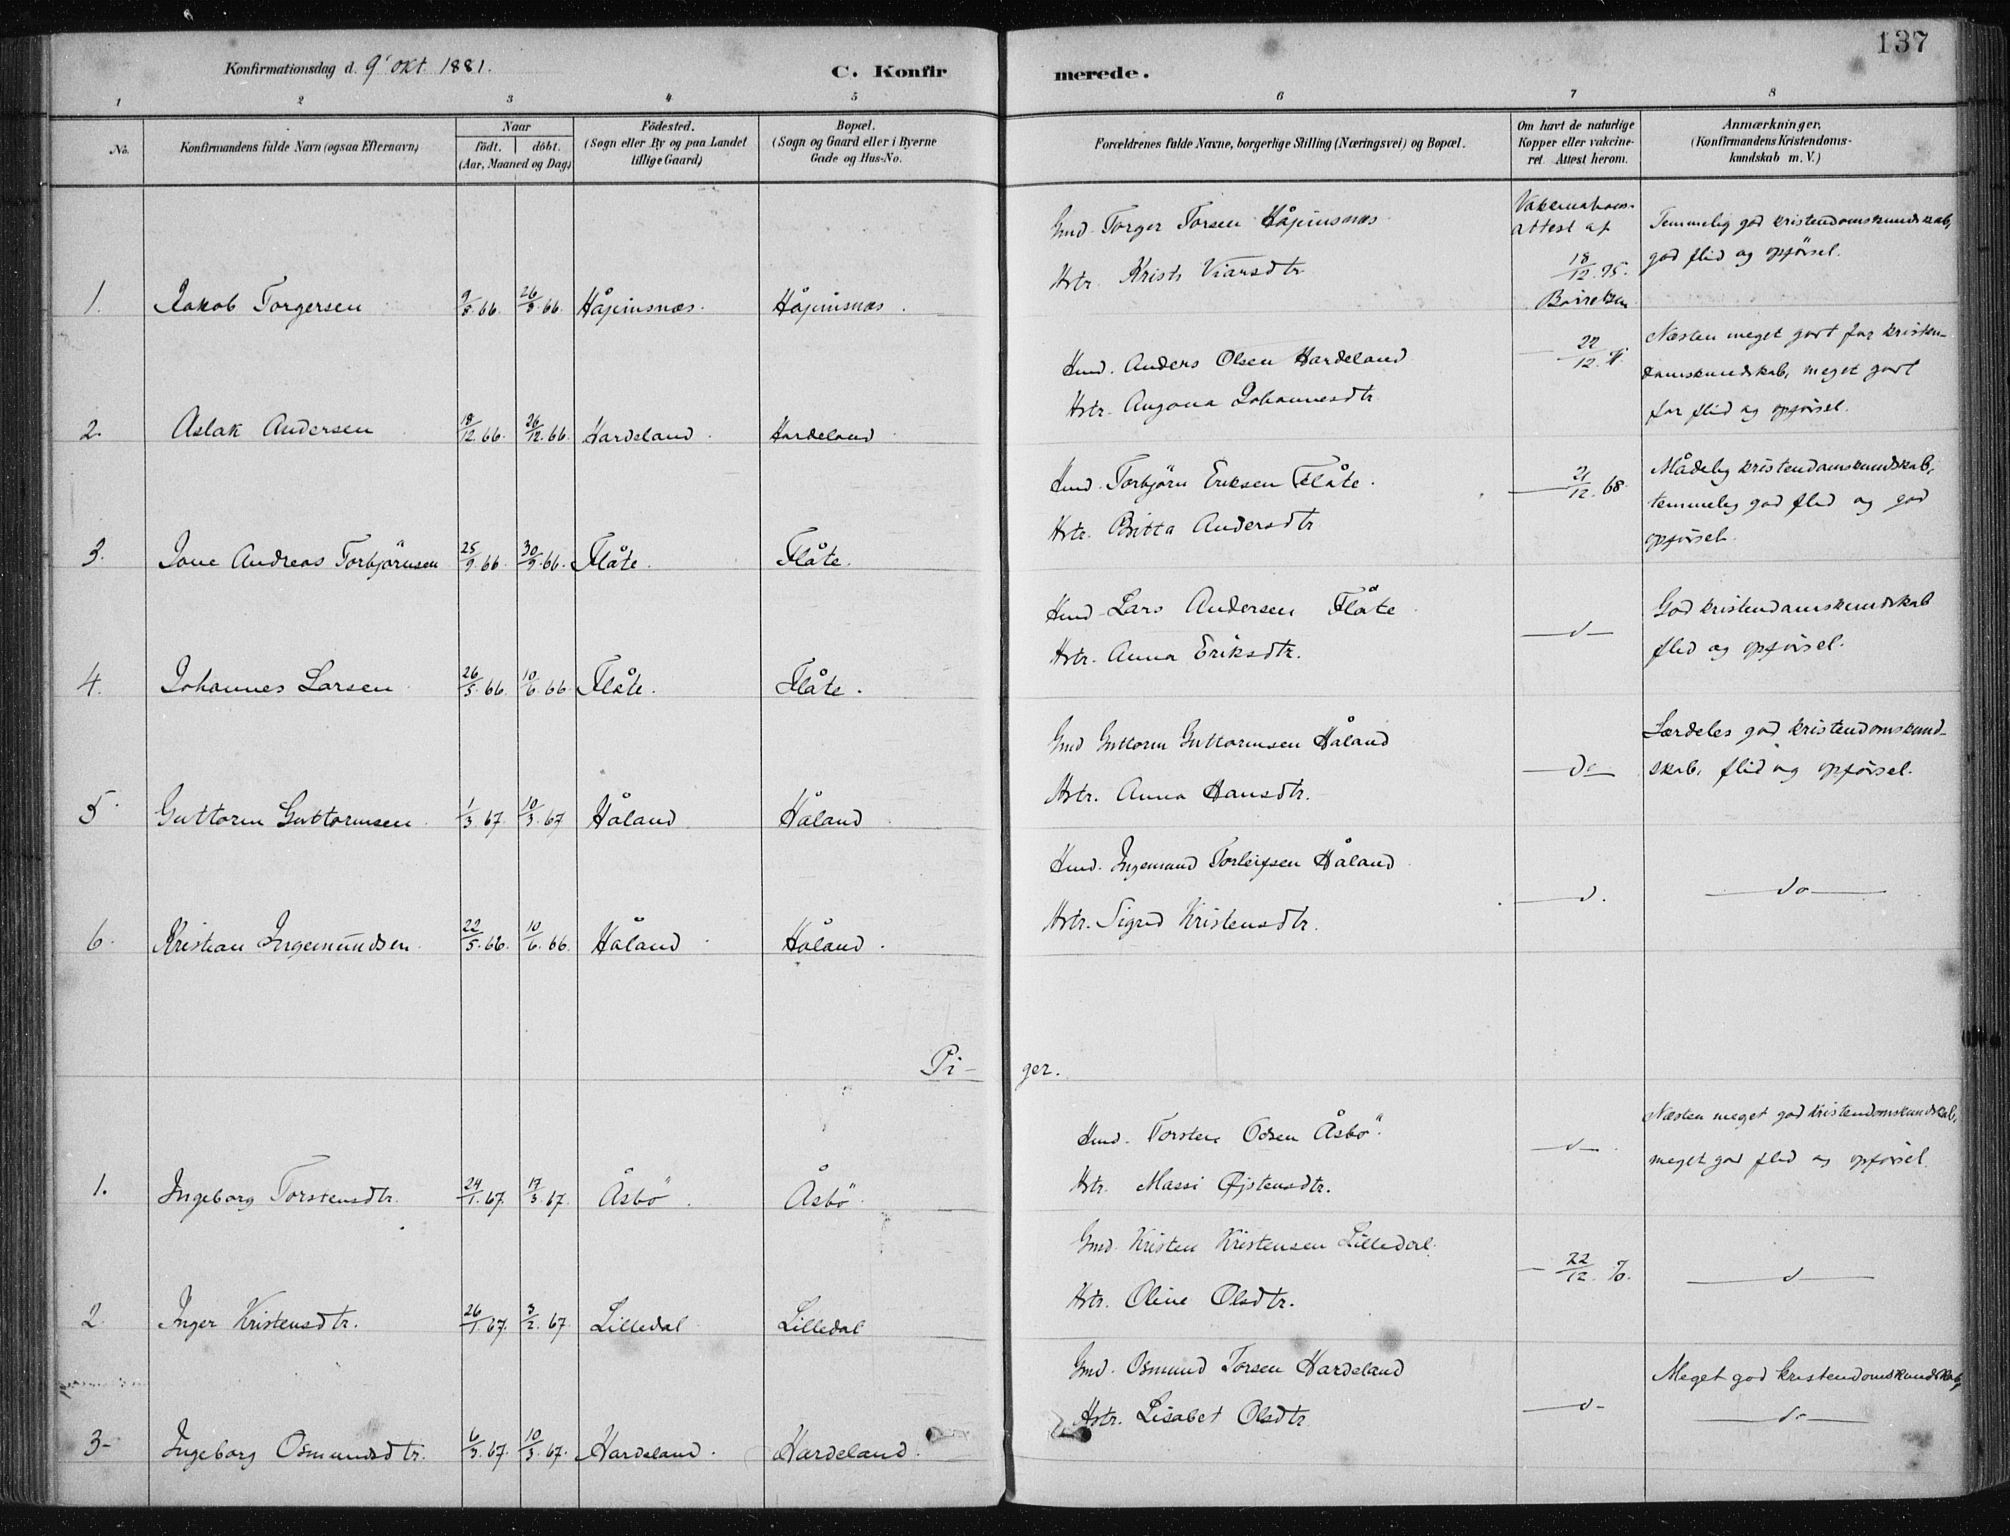 137
Konfirmationsdag d. 9' okt. 1881.
C. Konfirmerede.
1 2 3 4 5 6 7 8
No.
Konfirmandens fulde Navn (ogsaa Efternavn)
Naar
födt. döbt.
(Aar, Maaned og Dag)
Födested.
(Sogn eller By og paa Landet
tillige Gaard)
Bopæl.
(Sogn og Gaard eller i Byerne
Gade og Hus-No.
Forældrenes fulde Navne, borgerlige Stilling (Næringsvei) og Bopæl.
Om havt de naturlige
Kopper eller vakcine-
ret Attest herom.
Anmærkninger.
(Konfirmandens Kristendoms-
kundskab m. V.)
Gmd. Torger Torsen Håpinsnæs
Hstr. Krists Viarsdtr
Vakcinations-
attest af
18/12.75.
Temmelig god kristendomskundskab,
god flid og opförsel.
1. Jakob Torgersen 9/5 66. 26/5.66. Håpinsnæs. Håpinsnæs.
Hmd. Anders Olsen Hardeland
Hstr. Johannesdtr
22/12
Næsten meget godt for kristen-
domskundskab, meget godt
for flid og opförsel.
2. Aslak Andersen 18/12.66. 26/12.66. Hardeland. Hardeland
Hmd. Torbjörn Eriksen Flåte.
Hstr. Britta Andersdtr
21/12.68.
Mådelig kristendomskundskab,
temmelig god flid og god
opförsel.
3. Jone Andreas Torbjörnsen 25/9.66. 30/9.66. Flåte. Flåte.
Hmd. Lars Andersen Flåte
Hstr. Anna Eriksdtr.
—d—
God kristendomskundskab
flid og opförsel.
4. Johannes Larsen 26/5.66. 10/6.66 Flåte. Flåte.
Gmd Guttorm Guttormsen Håland
Hstr. Anna Hansdtr.
—do—
Særdeles god kristendomskund-
skab, flid og opförsel.
5. Guttorm Guttormsen. 1/3.67. 10/3.67 Håland. Håland
Hmd. Ingemund Torleifsen Håland
Hstr. Sigrid Kristensdtr.
—d.
—do—
6. Kristian Ingemundsen. 22/5.66. 10/6.66. Håland. Håland.
Pi-ger.
Hmd. Torsten Olsen Åsbö.
Hstr. Massi Øjstensdtr.
—d—
Næsten meget god kristendomskundskab,
meget god flid og opförsel.
1. Ingeborg Torstensdtr. 24/1.67. 17/3.67. Åsbö. Åsbö.
Gmd. Kristen Kristensen Lilledal.
Hstr. Oline Olsdtr.
—22/12.70.
—d—
2. Inger Kristensdtr. 26/1.67. 3/2.67. Lilledal Lilledal
Gmd. Osmund Torsen Hardeland
Hstr. Lisabet Olsdtr.
—d—
Meget god kristendomskundskab,
—do—
3- Ingeborg Osmundsdtr. 6/3.67. 10/3.67. Hardeland. Hardeland.